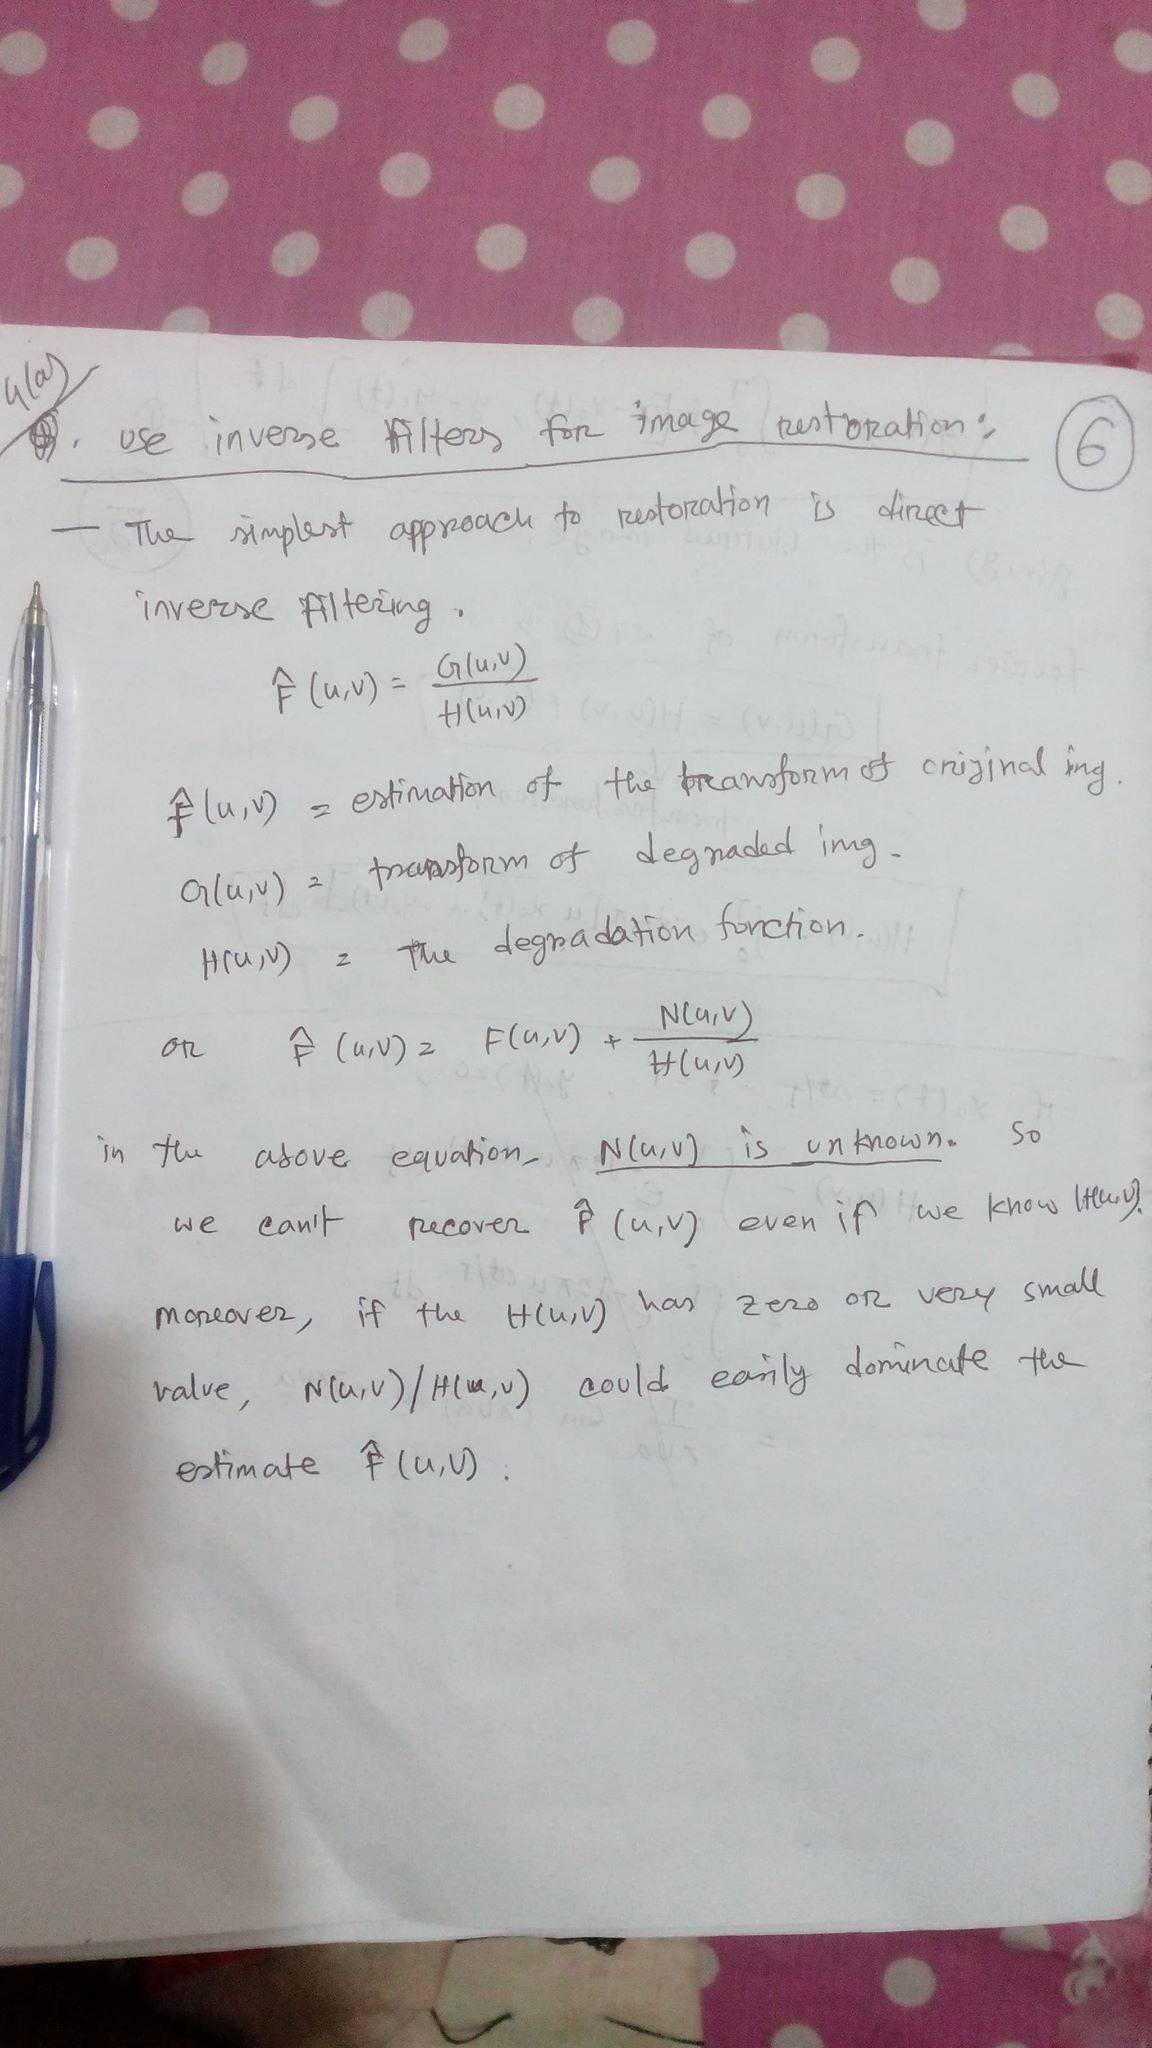 4(a)
use inverse filters for image restoration:
6
— The simplest approach to restoration is direct
inverse filtering.
F̂(u,v) = G(u,v) / H(u,v)
F̂(u,v) = estimation of the transform of original img.
G(u,v) = transform of degraded img.
H(u,v) = The degradation function.
or F̂(u,v) = F(u,v) + N(u,v) / H(u,v)
in the above equation, N(u,v) is unknown. So
we can't recover F̂(u,v) even if we know H(u,v).
moreover, if the H(u,v) has zero or very small
value, N(u,v)/H(u,v) could easily dominate the
estimate F̂(u,v).